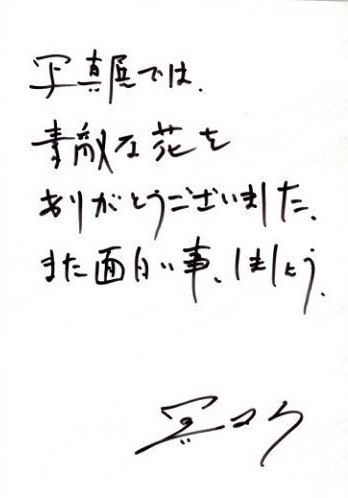 写真展では、
素敵な花を
ありがとうございました、
また面白い事、しましょう、